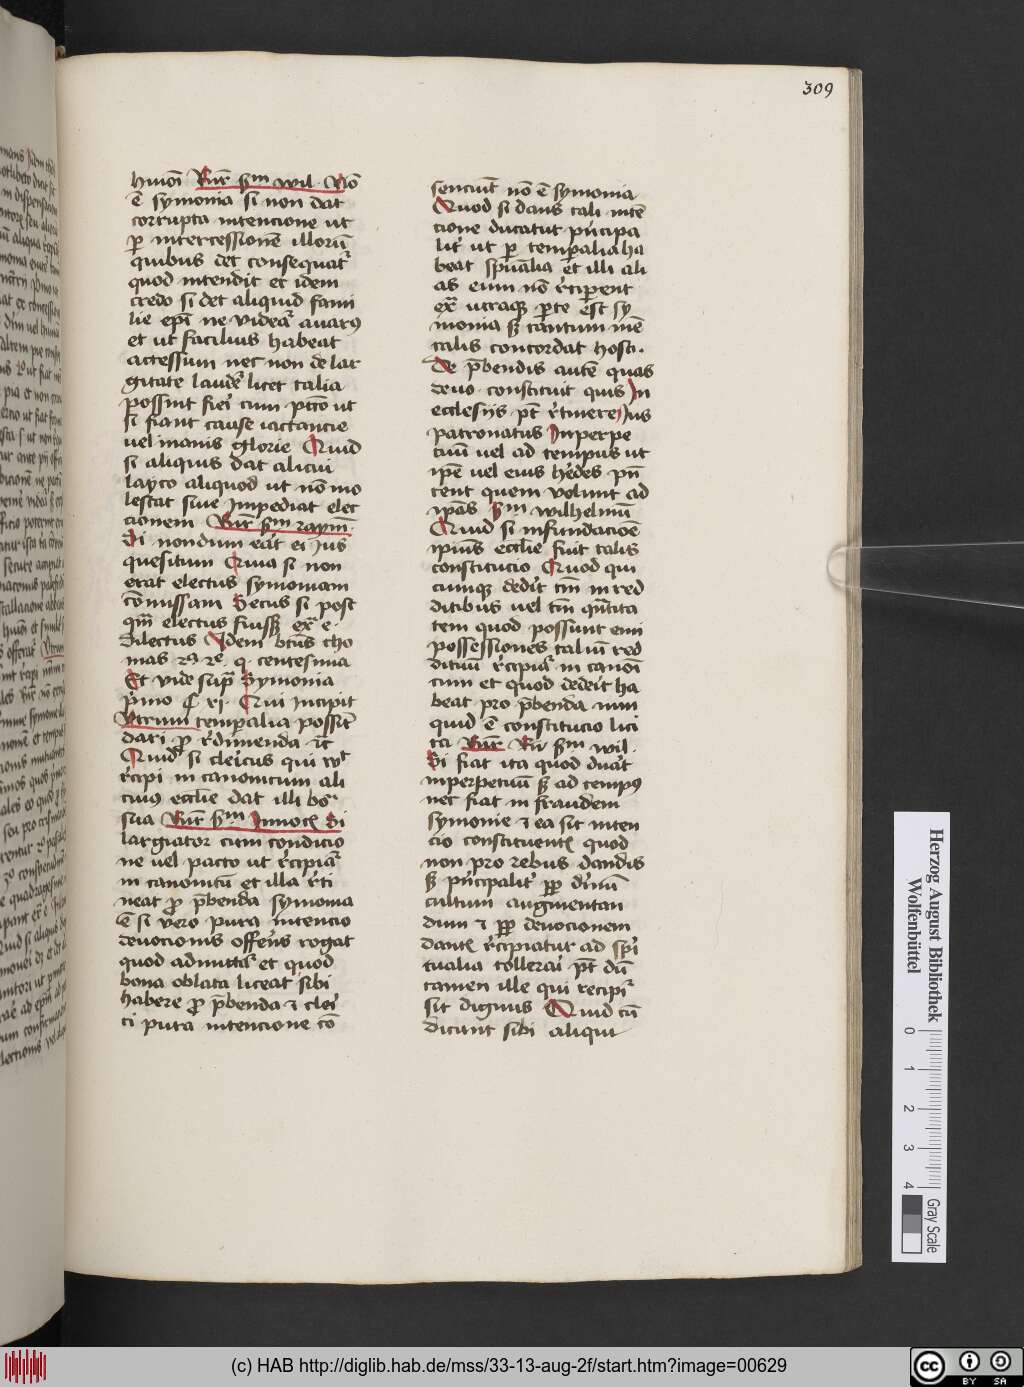 309
hmōi Rur̄ sm̄ wil. Nō
ē symonia si non dat
corrupta intencione ut
p̱ intercessionē illorū
quibus det consequat᷑
quod intendit et idem
credo si det aliquid fami
lie ep̄i ne videat᷑ auarꝰ
et ut facilius habeat
accessum nec non de lar
gitate laudet᷑ licet talia
possint fieri cum pctō ut
si fiant cause iactantie
vel inanis glorie Quid
si aliquis dat alicui
layco aliquod ut nō mo
lestat siue Impediat elec
cionem Rur̄ sm̄ raym̄.
Si nondum erat ei Jus
quesitum Quia si non
erat electus symoniam
cōmissam Secus si post
qm̄ electus fuisset ex̄ e.
dilectus Idem btūs tho
mas
Et vide sup̄ Symonia
p̄mo ¶ xi. Qui Incipit
Vtrum temp̱alia possint
dari p̱ r̄dimenda
Quid si clericus qui vlt
r̄cipi in canonicum ali
cuiꝰ ecclīe dat illi bo
sua Rur̄ sm̄ Innoc̄ Si
largiatur cum condicio
ne vel pacto ut r̄cipiat᷑
in canonicū et illa r̄ti
neat p̱ p̄benda symonia
ē si vero pura intencio
deuocionis offerens rogat
quod admittat᷑ et quod
bona oblata liceat sibi
habere p̱ p̄benda ⁊ cleri
ci pura intencione cō
senciūt nō ē symonia
Quod si dans tali intē
cione ducatur p̄ncipa
lit᷑ ut p̱ temp̱alia ha
beat spūalia et illi ali
as eum nō r̄cip̱ent
ex vtraqꝫ p̱te est sy
monia sꝫ tantum mē
talis concordat hosti.
De p̄bendis autē quas
deuo constituit quis In
ecclesijs pt̄ r̄tinere Jus
patronatus Inperpe
tuū vel ad tempus ut
ip̄e vel eius heredes pn̄
tent quem volunt ad
ip̄as sm̄ wilhelmū
Quid si infundacioē
ipiꝰ ecclīe fuit talis
constitucio Quod qui
cumqꝫ dedit tm̄ in red
ditibus vel tm̄ qn̄tita
tem quod possunt emi
possessiones taliū red
dituū r̄cipiat᷑ in canoī
cum et quod dederit ha
beat pro p̄benda num
quid ē constitucio lici
ta Rur̄ Rn̄ sm̄ wil.
Si fiat ita quod durat
inperpetuū sꝫ ad tempꝰ
nec fiat in fraudem
symonie ⁊ ea sit inten
cio constituent᷑ quod
non pro rebus dandis
sꝫ p̄ncipalit᷑ ꝓp̱ diuinū
cultum augmentan
dum ⁊ ꝓp̱ deuocionem
dantis r̄cipiatur ad spi
tualia tollerari pt̄ dū
tamen ille qui recipit᷑
sit dignus Quid cū
dicunt sibi aliqui
Herzog August Bibliothek
Wolfenbüttel
0 1 2 3 4
Gray Scale
(c) HAB http://diglib.hab.de/mss/33-13-aug-2f/start.htm?image=00629
cc BY SA